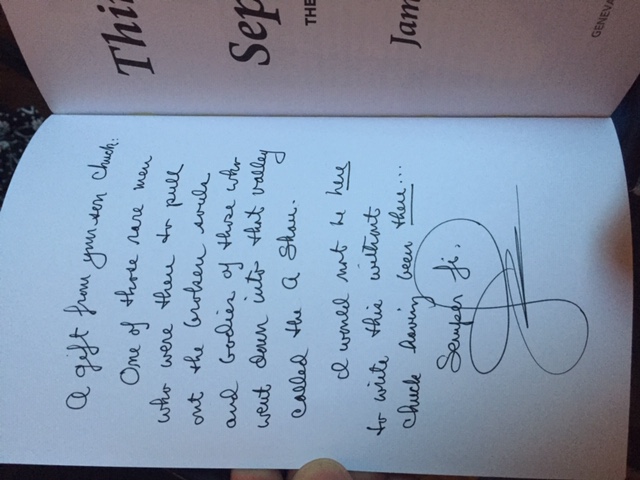 Thi
Sep
THE
Jam
GENEVA
A gift from your son Chuck:
One of those rare men
who were there to pull
out the broken souls
and bodies of those who
went down into that valley
called the A Shau.
I would not be here
to write this without
Chuck having been there...
Semper fi,